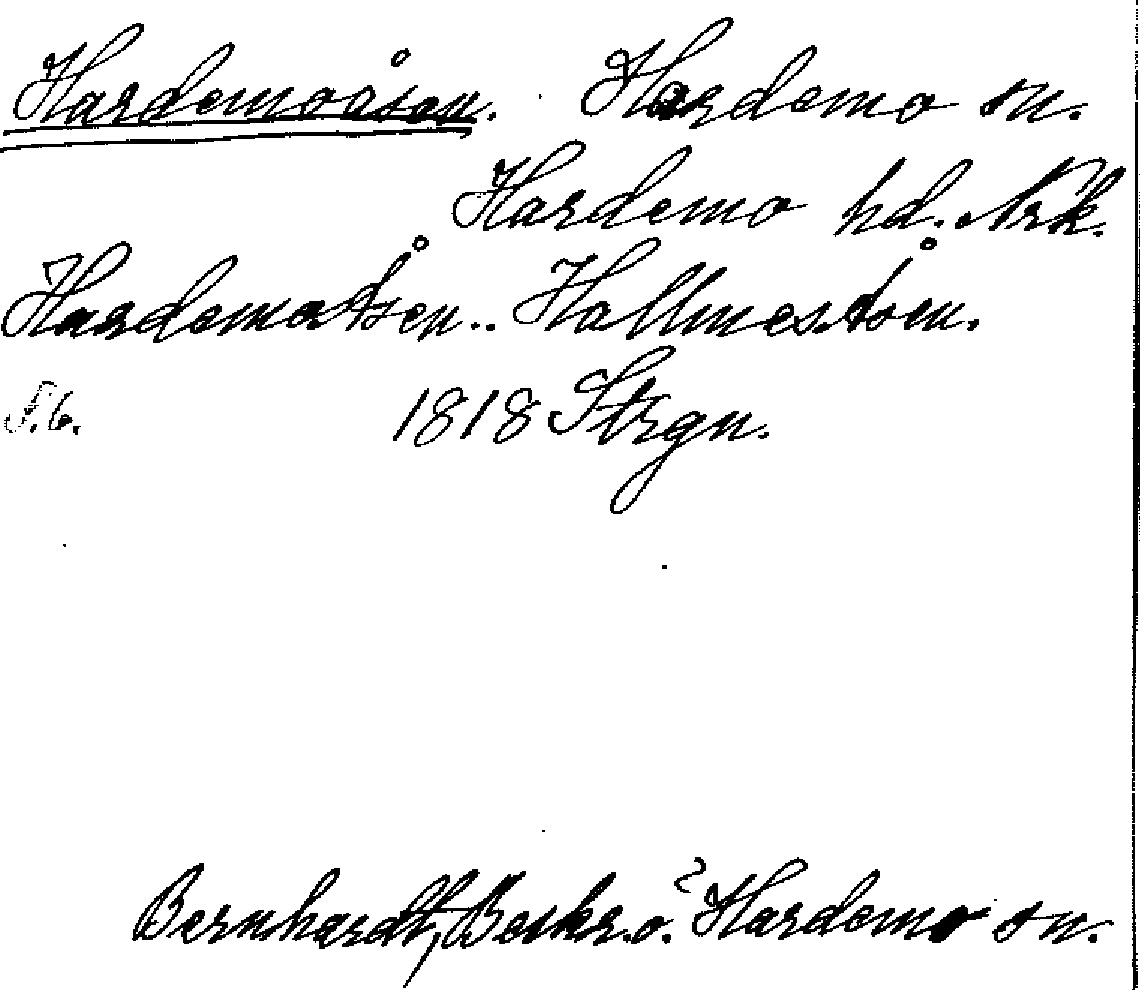 Hardemoåsen. Hardemo sn.
Hardemo hd. Nrk.
Hardemoåsen.. Hallmesåsen.
F.6. 1818 Strgn.
Bernhardt, Beskr. ö. Hardemo sn.